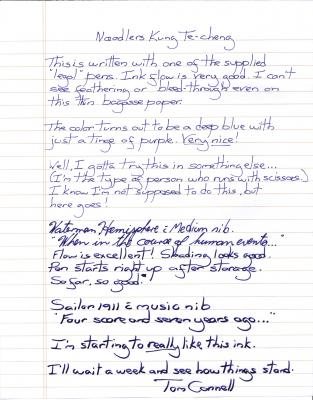 Noodlers Kung Te-cheng
This is written with one of the supplied
"legal" pens. Ink flow is very good. I can't
see feathering or bleed-through even on
this thin bagasse paper.
The color turns out to be a deep blue with
just a tinge of purple. Very nice!
Well, I gotta try this in something else...
(I'm the type of person who runs with scissors.)
I know I'm not supposed to do this, but
here goes!
Waterman Hemisphere c Medium nib.
"When in the course of human events..."
Flow is excellent! Shading looks good.
Pen starts right up after storage.
So far, so good.
Sailor 1911 c music nib
"Four score and seven years ago..."
I'm starting to really like this ink.
I'll wait a week and see how things stand.
Tom Connell